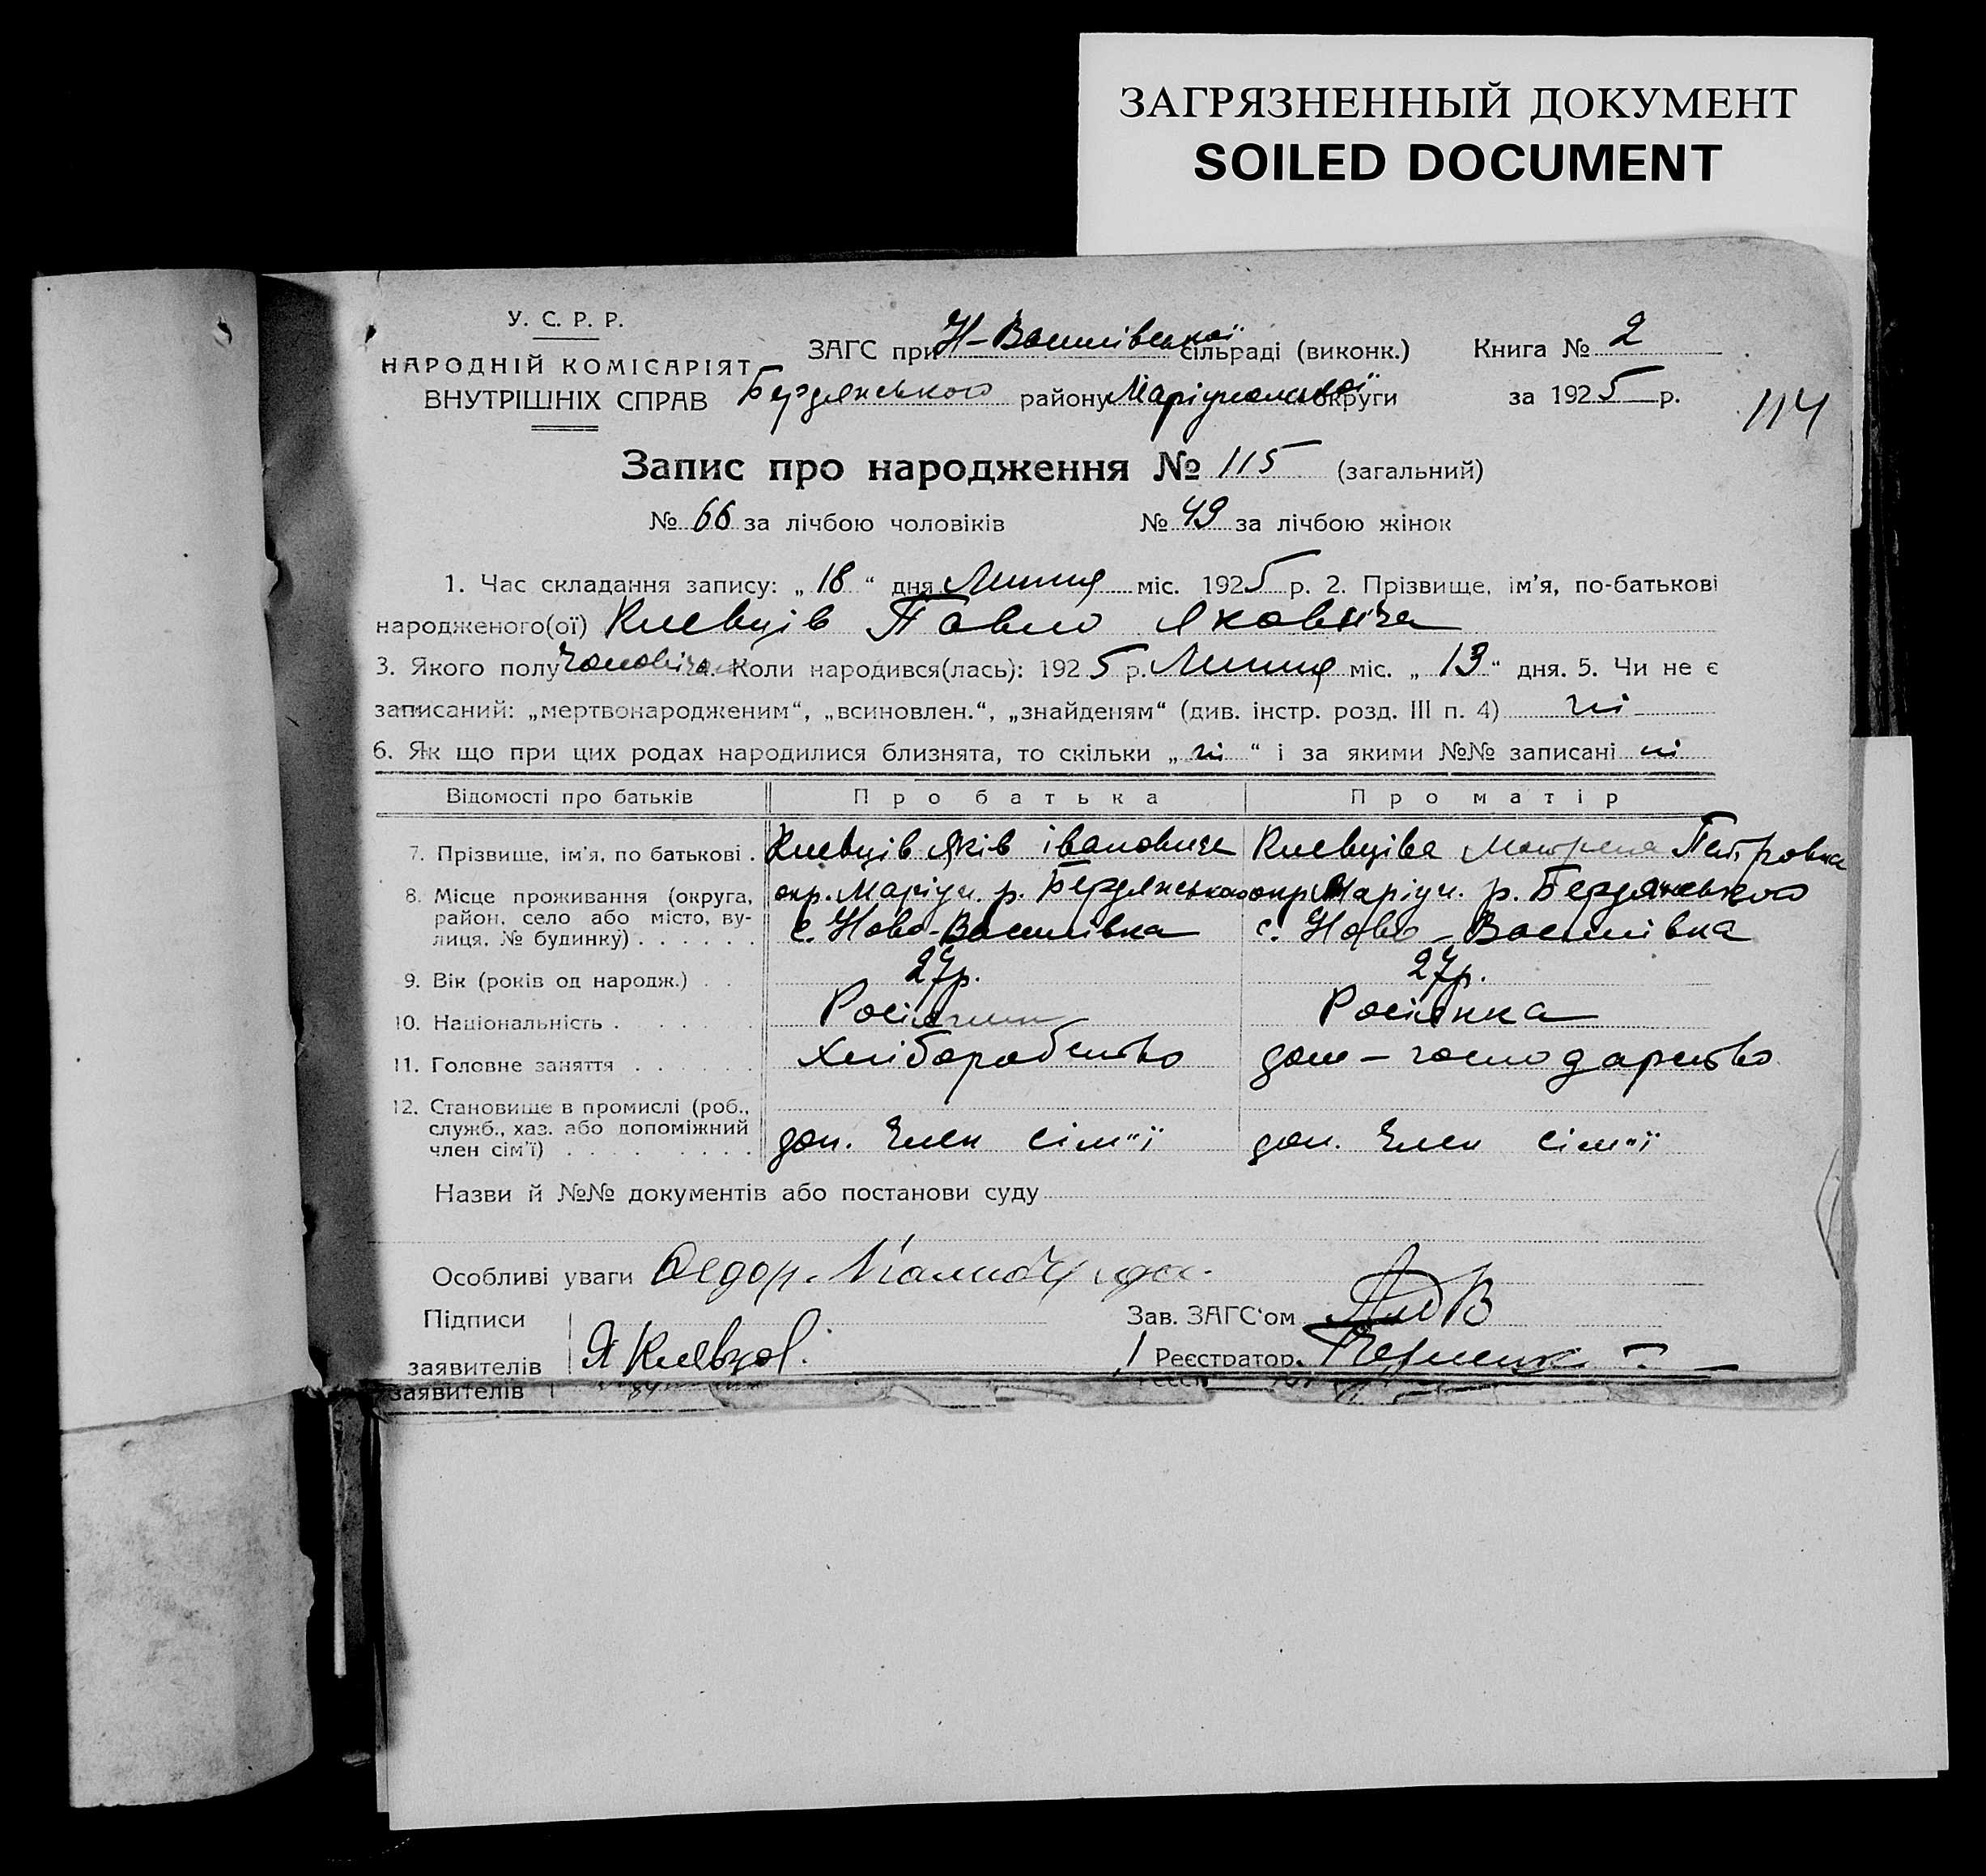 ЗАГРЯЗНЕННЫЙ ДОКУМЕНТ
SOILED DOCUMENT
У. С. Р. Р.
НАРОДНІЙ КОМІСАРІЯТ
ВНУТРІШНІХ СПРАВ
ЗАГС при Н-Василівської сільраді (виконк.)
Книга № 2
Бердянського району Маріупольської округи
за 1925 р.
114
Запис про народження № 115 (загальний)
№ 66 за лічбою чоловіків № 49 за лічбою жінок
1. Час складання запису: „ 18 “ дня Липця міс. 1925 р. 2. Прізвище, ім’я, по-батькові
народженого(ої) Клевців Павло Яковича
3. Якого полу Чоловіча 4. Коли народився(лась): 1925 р. Липця міс. „ 13 “ дня. 5. Чи не є
записаний: „мертвонародженим“, „всиновлен.“, „знайденям“ (див. інстр. розд. III п. 4) ні
6. Як що при цих родах народилися близнята, то скільки „ ні “ і за якими №№ записані ні
Відомості про батьків Про батька Про матір
7. Прізвище, ім’я, по батькові . Клевців Яків івановича Клевціва Мотрена Петровна
8. Місце проживання (округа, район, село або місто, вулиця, № будинку) . . . . . .
окр. Маріуп. р. Бердянського
с. Ново-Василівка
окр. Маріуп. р. Бердянського
с. Ново-Василівка
9. Вік (років од народж.) . . 27р. 27р.
10. Національність . . . . . Росіянин Росіянка
11. Головне заняття . . . . . . Хліборобство дом-господарство
12. Становище в промислі (роб., служб., хаз. або допоміжний член сім’ї) . . . . . . . . .
доп. член сім"ї доп. член сім"ї
Назви й №№ документів або постанови суду
Особливі уваги Федор.
Підписи
заявителів Я Клевцов.
Зав. ЗАГС‘ом
Реєстратор
заявителів